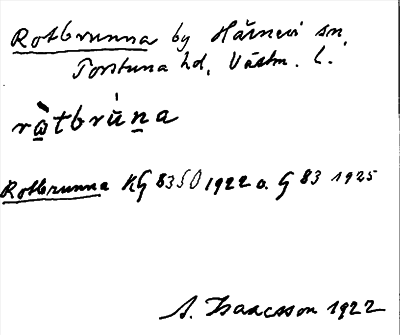 Rotbrunna by Härnevi sn,
Torstuna hd, Västm. l.
rὼ̠tbru̇̄n̠a
Rotbrunna KG 8350 1922 o. G 83 1925
A. Isaacsson 1922